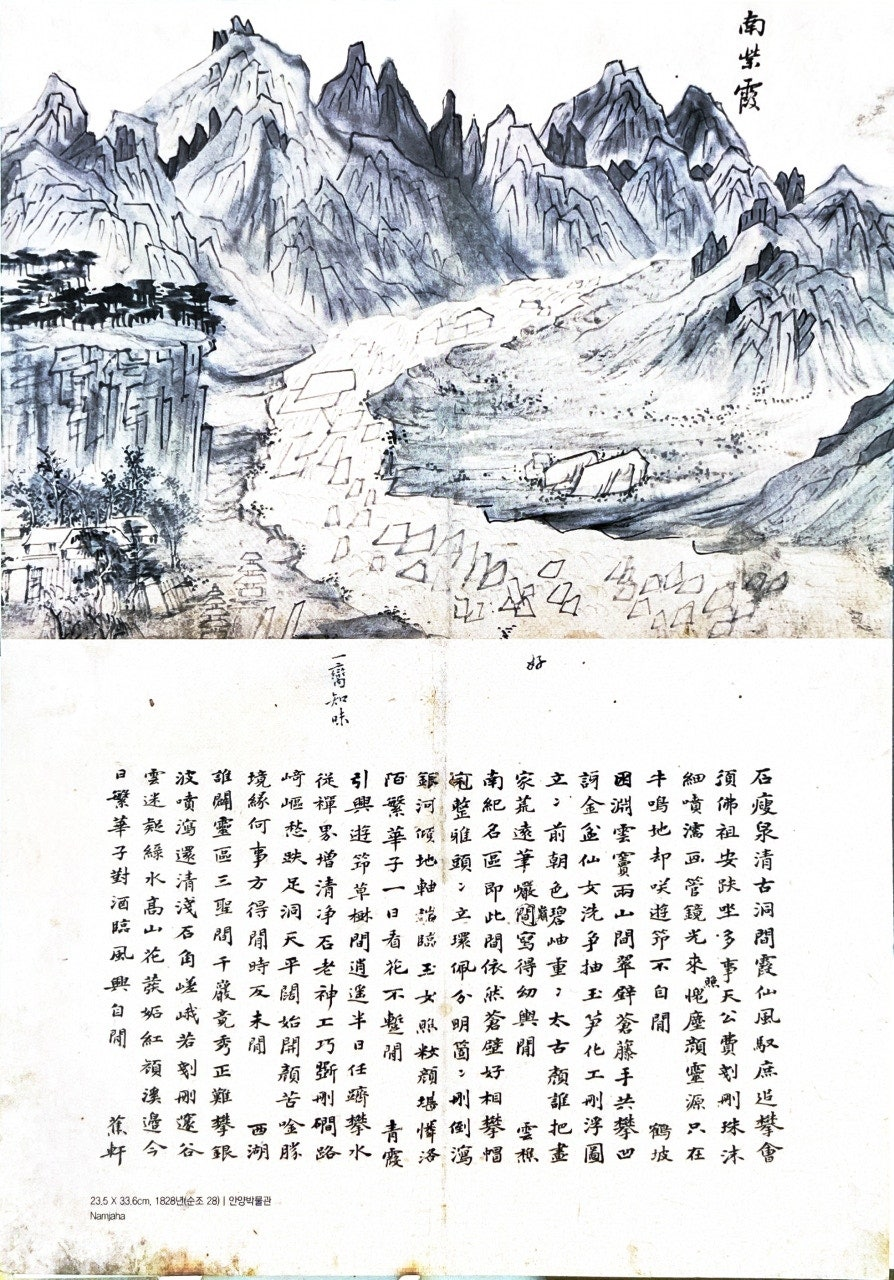 南紫霞
好
一臠知味
石瘦泉清古洞間霞仙風馭庶追攀會
須佛祖安趺坐多事天公費刻刪珠沫
細噴濡画管鏡光来照愧塵顔靈源只在
牛鳴地却咲遊笻不自閒 鶴坡
困淵雲竇兩山間翠壁蒼藤手共攀凹
訶金盆仙女洗争抽玉笋化工刪浮圖
立〻前朝色碧岫重〻太古顔誰把畫
家荒遠筆巖間寫得幼輿閒 雲樵
南紀名區即此間依然蒼壁好相攀帽
整雅頭〻立環佩分明箇〻刪倒瀉
銀河傾地軸臨玉女照粧顔堪憐洛
陌繁華子一日看花不蹔閒 青霞
引興遊笻草樹間逍遥半日任躋攀水
従禪界增清浄石老神工巧斲刪磵路
崎嶇愁趺足洞天平闊始開顔苦唫勝
境緣何事方得閒時反未閒 西湖
誰闢靈區三聖間千巖竞秀正難攀銀
波噴瀉還清淺石角嵯峨若刻刪邃谷
雲迷疑綠水髙山花蘂妬紅顔溪邉今
日繁華子對酒臨風興自閒 蕉軒
23.5 X 33.6cm, 1828년(순조 28) | 안양박물관
Namjaha